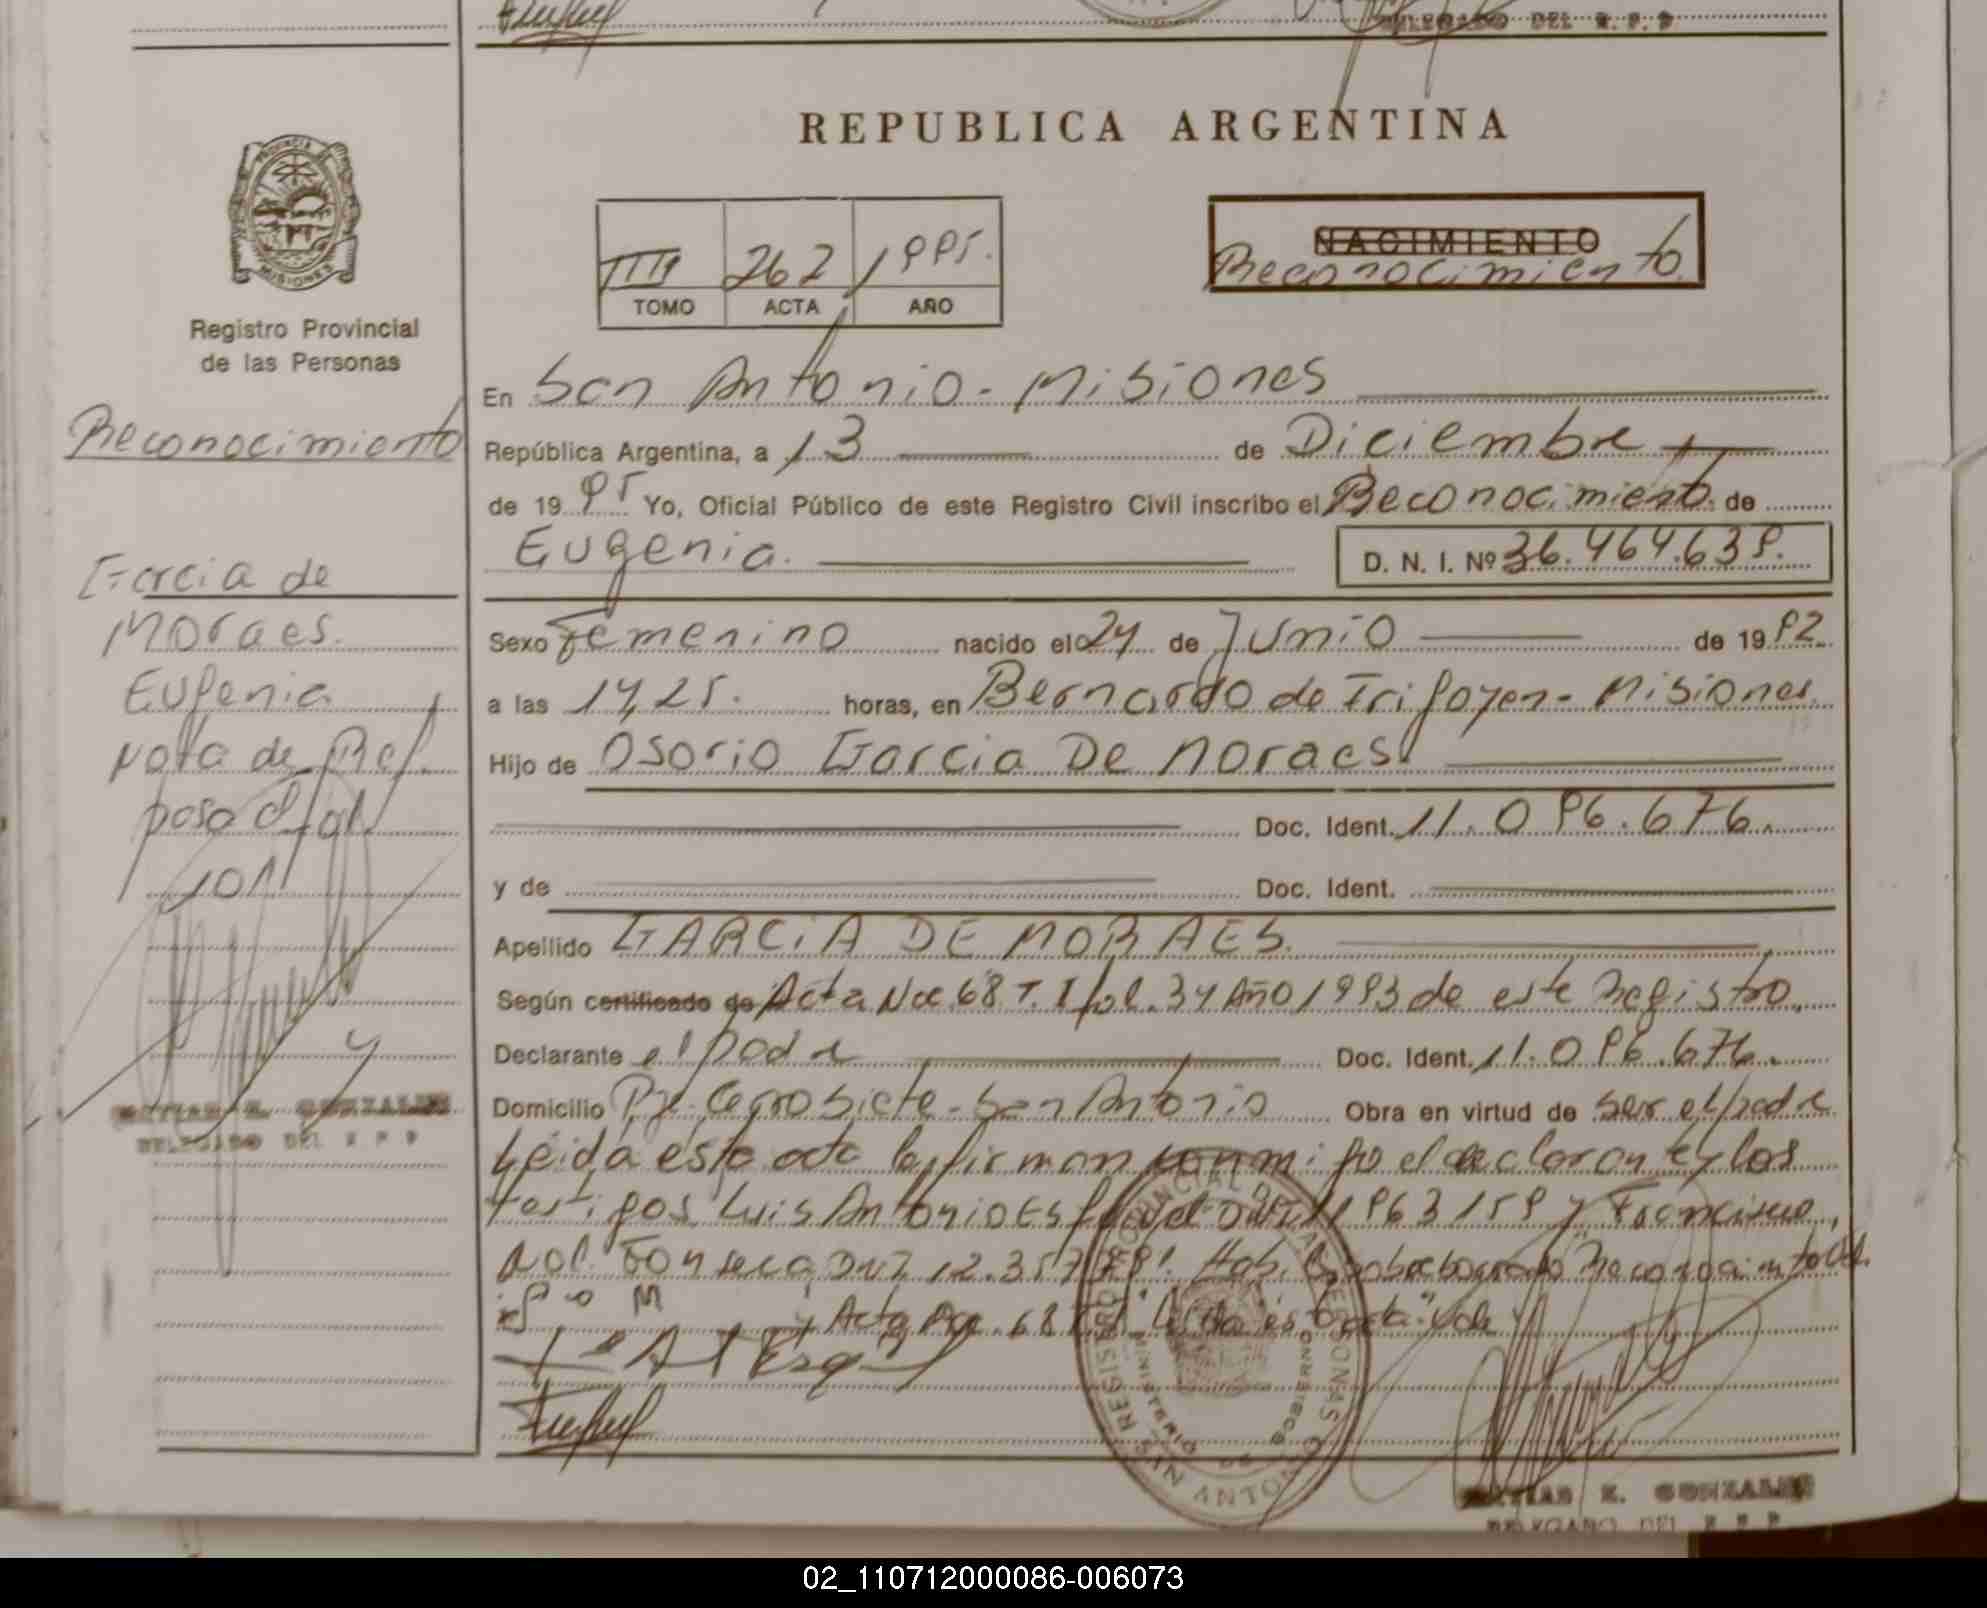 DELEGADO DEL R. P. P
REPUBLICA ARGENTINA
PROVINCIA DE
MISIONES
Registro Provincial
de las Personas
III 262 1995.
TOMO ACTA AÑO
NACIMIENTO
Reconocimiento
En San Antonio - Misiones
República Argentina, a 13 de Diciembre
de 1995 Yo, Oficial Público de este Registro Civil inscribo el Reconocimiento de
Eugenia. D. N. I. Nº 36.464.639.
Sexo Femenino nacido el 24 de Junio de 1992
a las 14,25. horas, en Bernardo de Irigoyen - Misiones.
Hijo de Osorio Garcia De Moraes
Doc. Ident. 11.096.676.
y de Doc. Ident.
Apellido GARCIA DE MORAES.
Según certificado de Acta Nro 68 T. I fol. 34 Año 1993 de este Registro
Declarante el padre Doc. Ident. 11.096.676.
Domicilio Pje. Cerro Siete - San Antonio Obra en virtud de ser el padre
Leida esta acta la firman conmigo el declarante y los
testigos Luis Antonio y Francisco
Fonseca DNI 12.357
Acta Nro 68
Reconocimiento
Garcia de
Moraes.
Eugenia
Nota de Ref.
paso al fol
101
MATIAS E. GONZALEZ
DELEGADO DEL R P P
REGISTRO PROVINCIAL DE LAS PERSONAS
MINISTERIO DE GOBIERNO
SAN ANTONIO
MATIAS E. GONZALEZ
DELEGADO DEL R P P
02_110712000086-006073